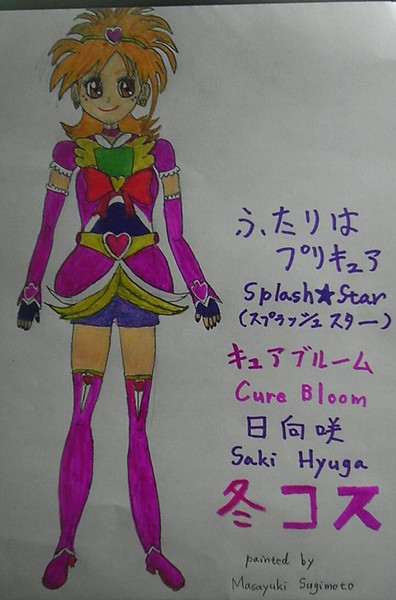 ふたりは
プリキュア
Splash★Star
(スプラッシュ スター)
キュアブルーム
Cure Bloom
日向咲
Saki Hyuga
冬コス
painted by
Masayuki Sugimoto